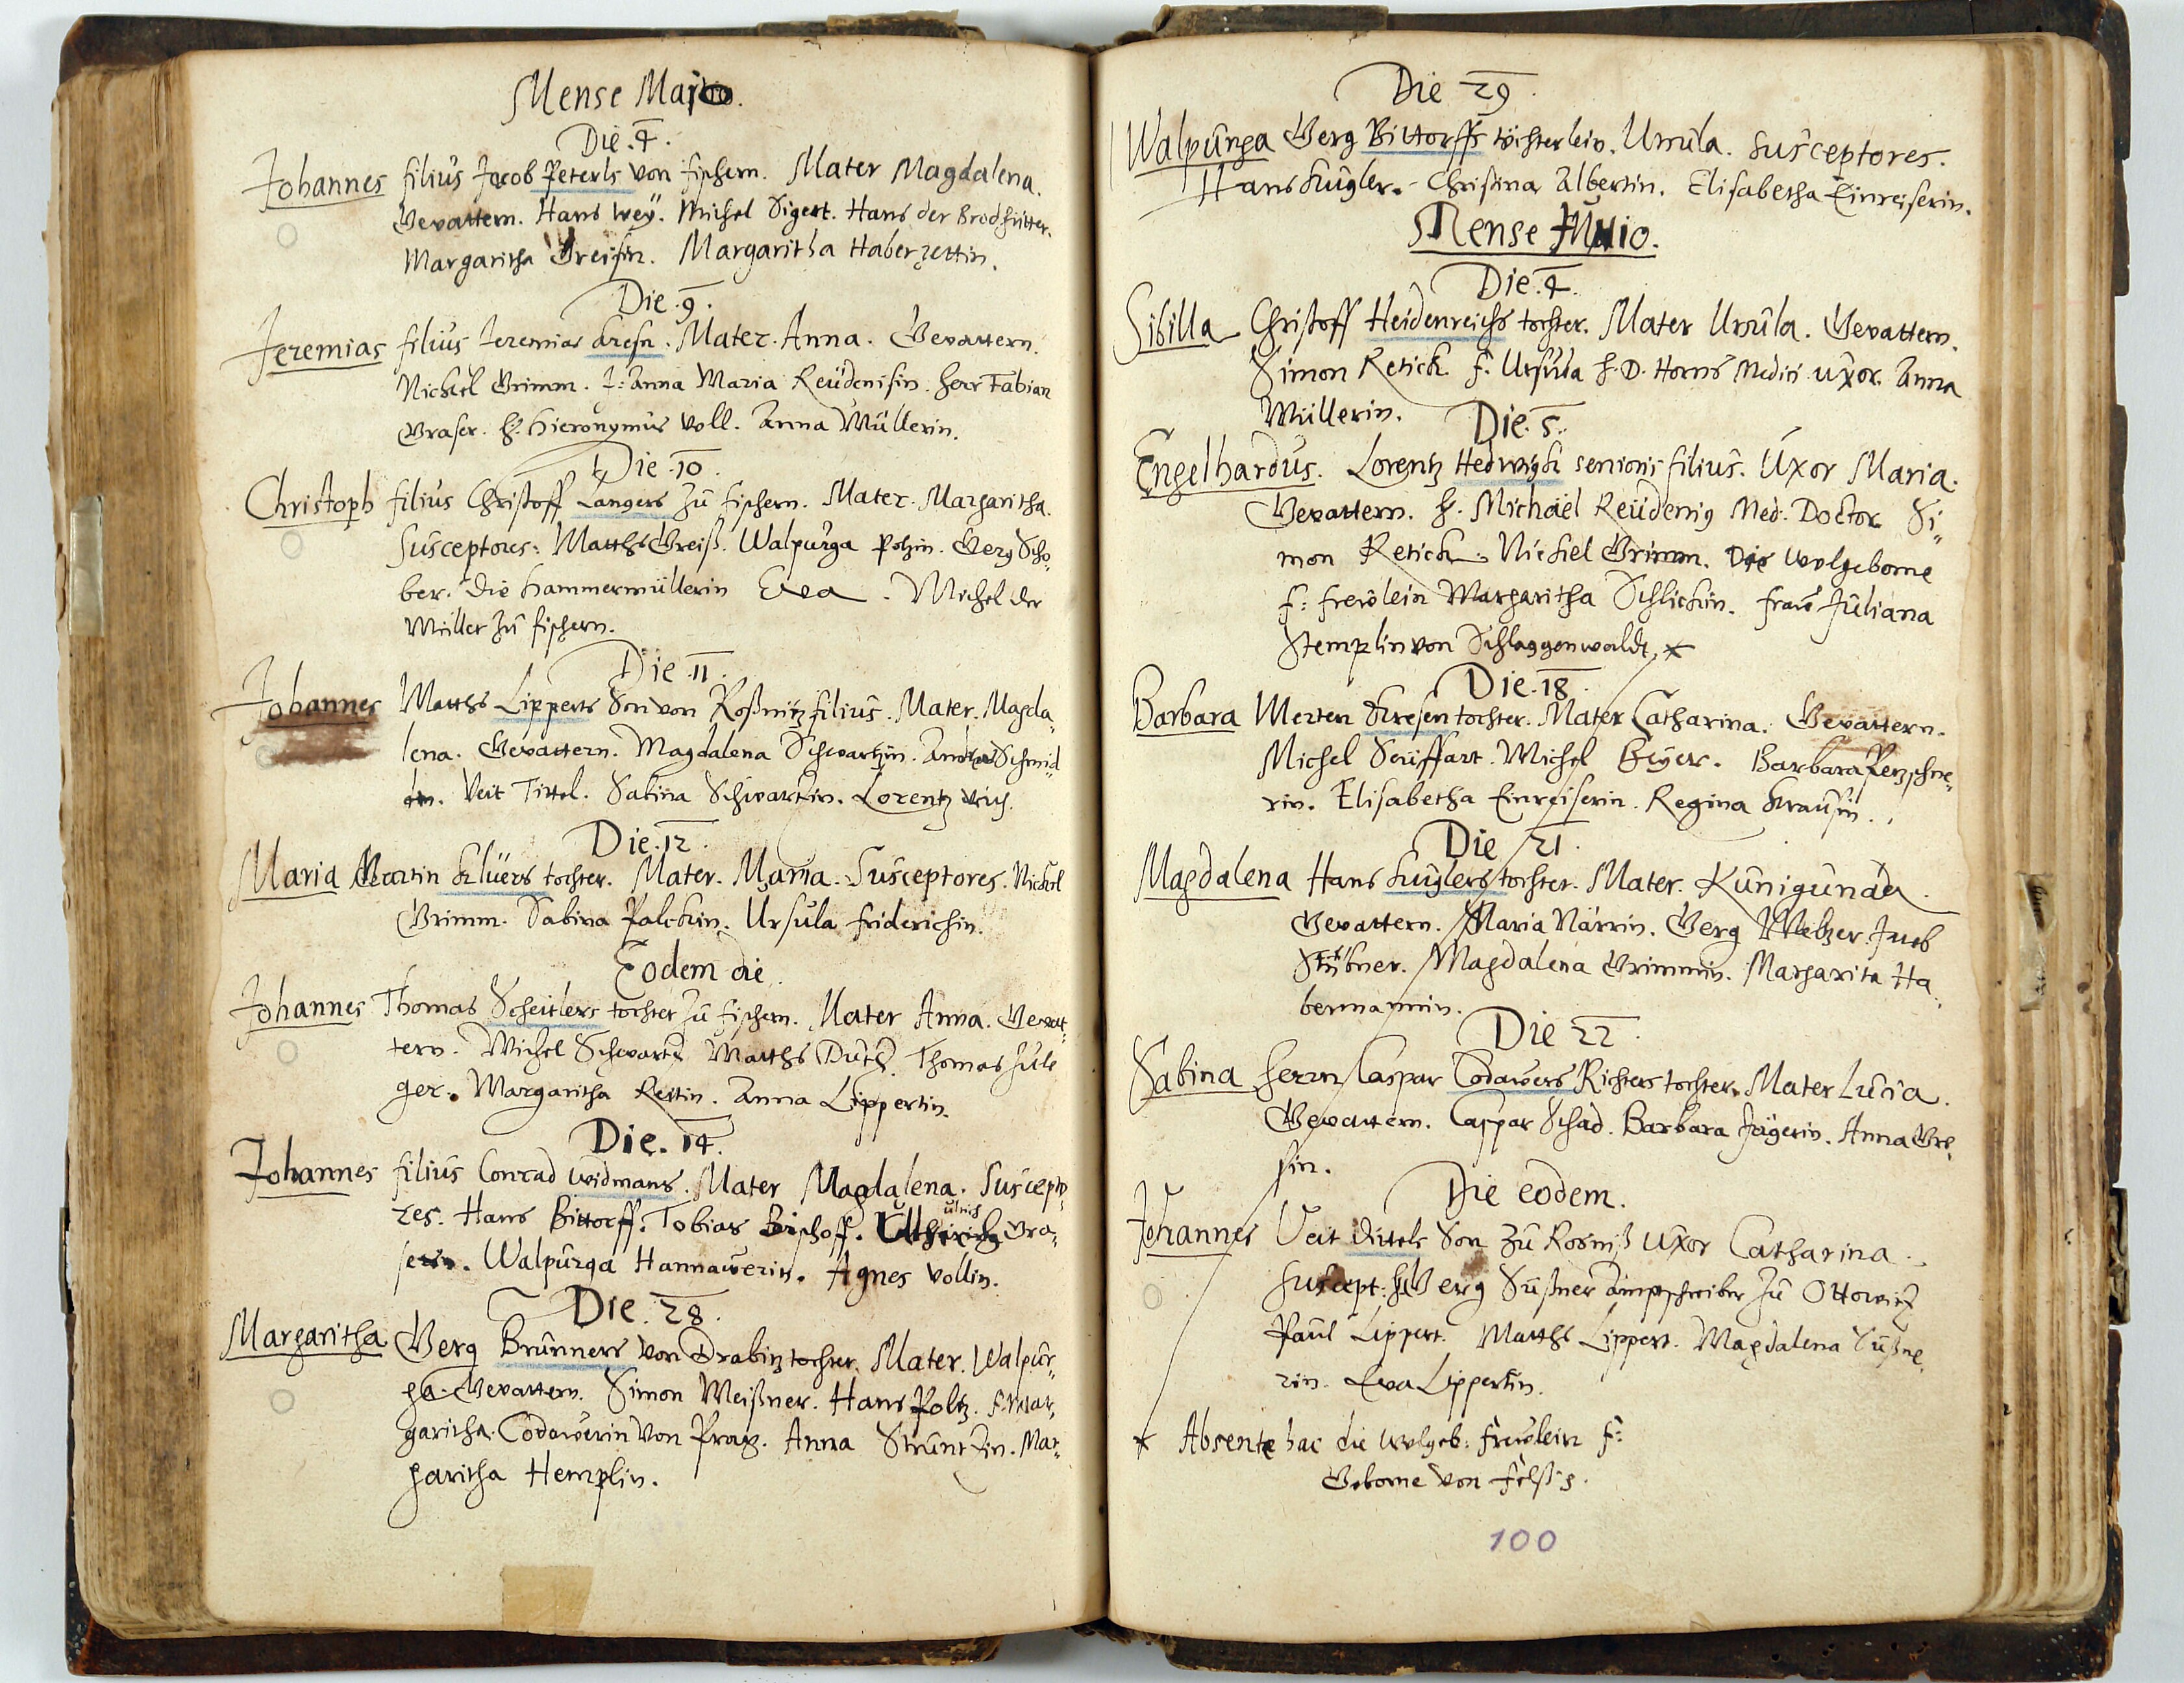 Mense Majo.
Die .4.
Johannes filius Jacob Peterls von Fischern. Mater Magdalena.
Gevattern. Hans Weÿ. Michel Sigert. Hans der Brodhüter.
Margaritha Greisin. Margaritha Haberzettin.
Die .9.
Jeremias filius Jeremias Kresn. Mater. Anna. Gevattern.
Nickel Grimm. J: Anna Maria Reüdenisin. Herr Fabian
Graser. H. Hieronymus Voll. Anna Müllerin.
Die .10.
Christoph filius Christoff Langers zu Fischern. Mater. Margaritha.
Susceptores: Matthes Greiß. Walpurga Polzin. Gerg Scho„
ber. Die Hammermüllerin Eva. Michel der
Müller zu Fischern.
Die .11.
Johannes Matthes Lipperts Son von Roßnitz filius. Mater. Magda„
lena. Gevattern. Magdalena Schwartzin. Schmid„
Veit Tittel. Sabina Schwartzin. Lorentz
Die .12.
Maria Martin Klüers tochter. Mater. Maria. Susceptores. Nickel
Grimm. Sabina Palckin. Ursula Friderichin.
Eodem die.
Johannes Thomas Scheitlers tochter zu Fischern. Mater Anna. Gevat„
tern. Michel Schwartz Matthes Dutz. Thomas Hüle
ger. Margaritha Rettin. Anna Lippertin.
Die. 14.
Johannes filius Conrad Widmans. Mater Magdalena. Suscepto„
ulrich
res. Hans Bittorff. Tobias Bischoff. Gra„
serin. Walpurga Hannawerin. Agnes Vollin.
Die. 28.
Margaritha Gerg Brunners von Drabitz tochter. Mater. Walpur„
ga. Gevattern. Simon Meißner. Hans Poltz. F. Mar„
garitha Codawerin von Prag. Anna Struntzin. Mar„
garitha Hemplin.
Die 29.
Walpurga Gerg Bittorffs töchterlein. Ursula. Susceptores.
Hans Kugler. Christina Albertin. Elisabetha Einreiserin.
Mense Junio.
Die .4.
Sibilla Christoff Heidenreichs tochter. Mater Ursula. Gevattern.
Simon Retich. F. Ursula H. D. Horns Medici uxor. Anna
Müllerin.
Die. 5.
Engelhardus. Lorentz Hedwigk senioris filius. Uxor Maria.
Gevattern. H. Michäel Reüdenig Med. Doctor. Si„
mon Retich. Nickel Grimm. Die Wolgeborne
F: Frewlein Margaritha Schlickin. Fraw Juliana
Stemplin von Schlaggenwaldt. *
Die .18.
Barbara Merten Kresen tochter. Mater Catharina. Gevattern.
Michel Seüffart. Michel Beÿer. Barbara Petzschne„
rin. Elisabetha Einreiserin. Regina Krausin.
Die 21.
Magdalena Hans Kuglers tochter. Mater. Kunigunda.
Gevattern. Maria Närrin. Gerg Meltzer. Jacob
Stübner. Magdalena Grimmin. Margarita Ha„
bermannin.
Die 22.
Sabina Herrn Caspar Codawers Richters tochter. Mater Lucia.
Gevattern. Caspar Schad. Barbara Jägerin. Anna Gre„
sin.
Die eodem.
Johannes Veit Dittels Son zu Rosnitz Uxor Catharina.
Suscept: H Gerg Süßner Amptschreiber zu Ottowitz
Paul Lippert. Matthes Lippert. Magdalena Süßne„
rin. Eva Lippertin.
* Absente hac die Wolgeb: Frewlein F:
Geborne von Felß
100